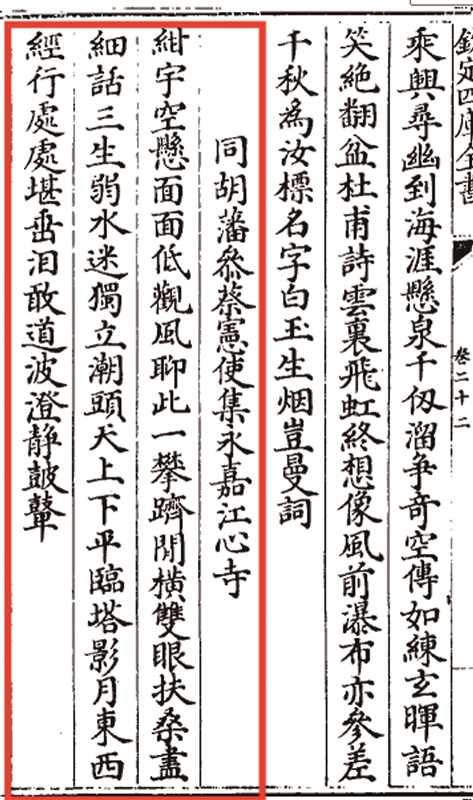 欽定四庫全書
卷二十二
乘興尋幽到海涯懸泉千仭溜爭奇空傳如練玄暉語
笑絶翻盆杜甫詩雲裏飛虹終想像風前瀑布亦參差
千秋為汝標名字白玉生烟豈曼詞
同胡藩參蔡憲使集永嘉江心寺
紺宇空懸面面低觀風聊此一攀躋閒橫雙眼扶桑盡
細話三生弱水迷獨立潮頭天上下平臨塔影月東西
經行處處堪垂泪敢道波澄静鼓鼙